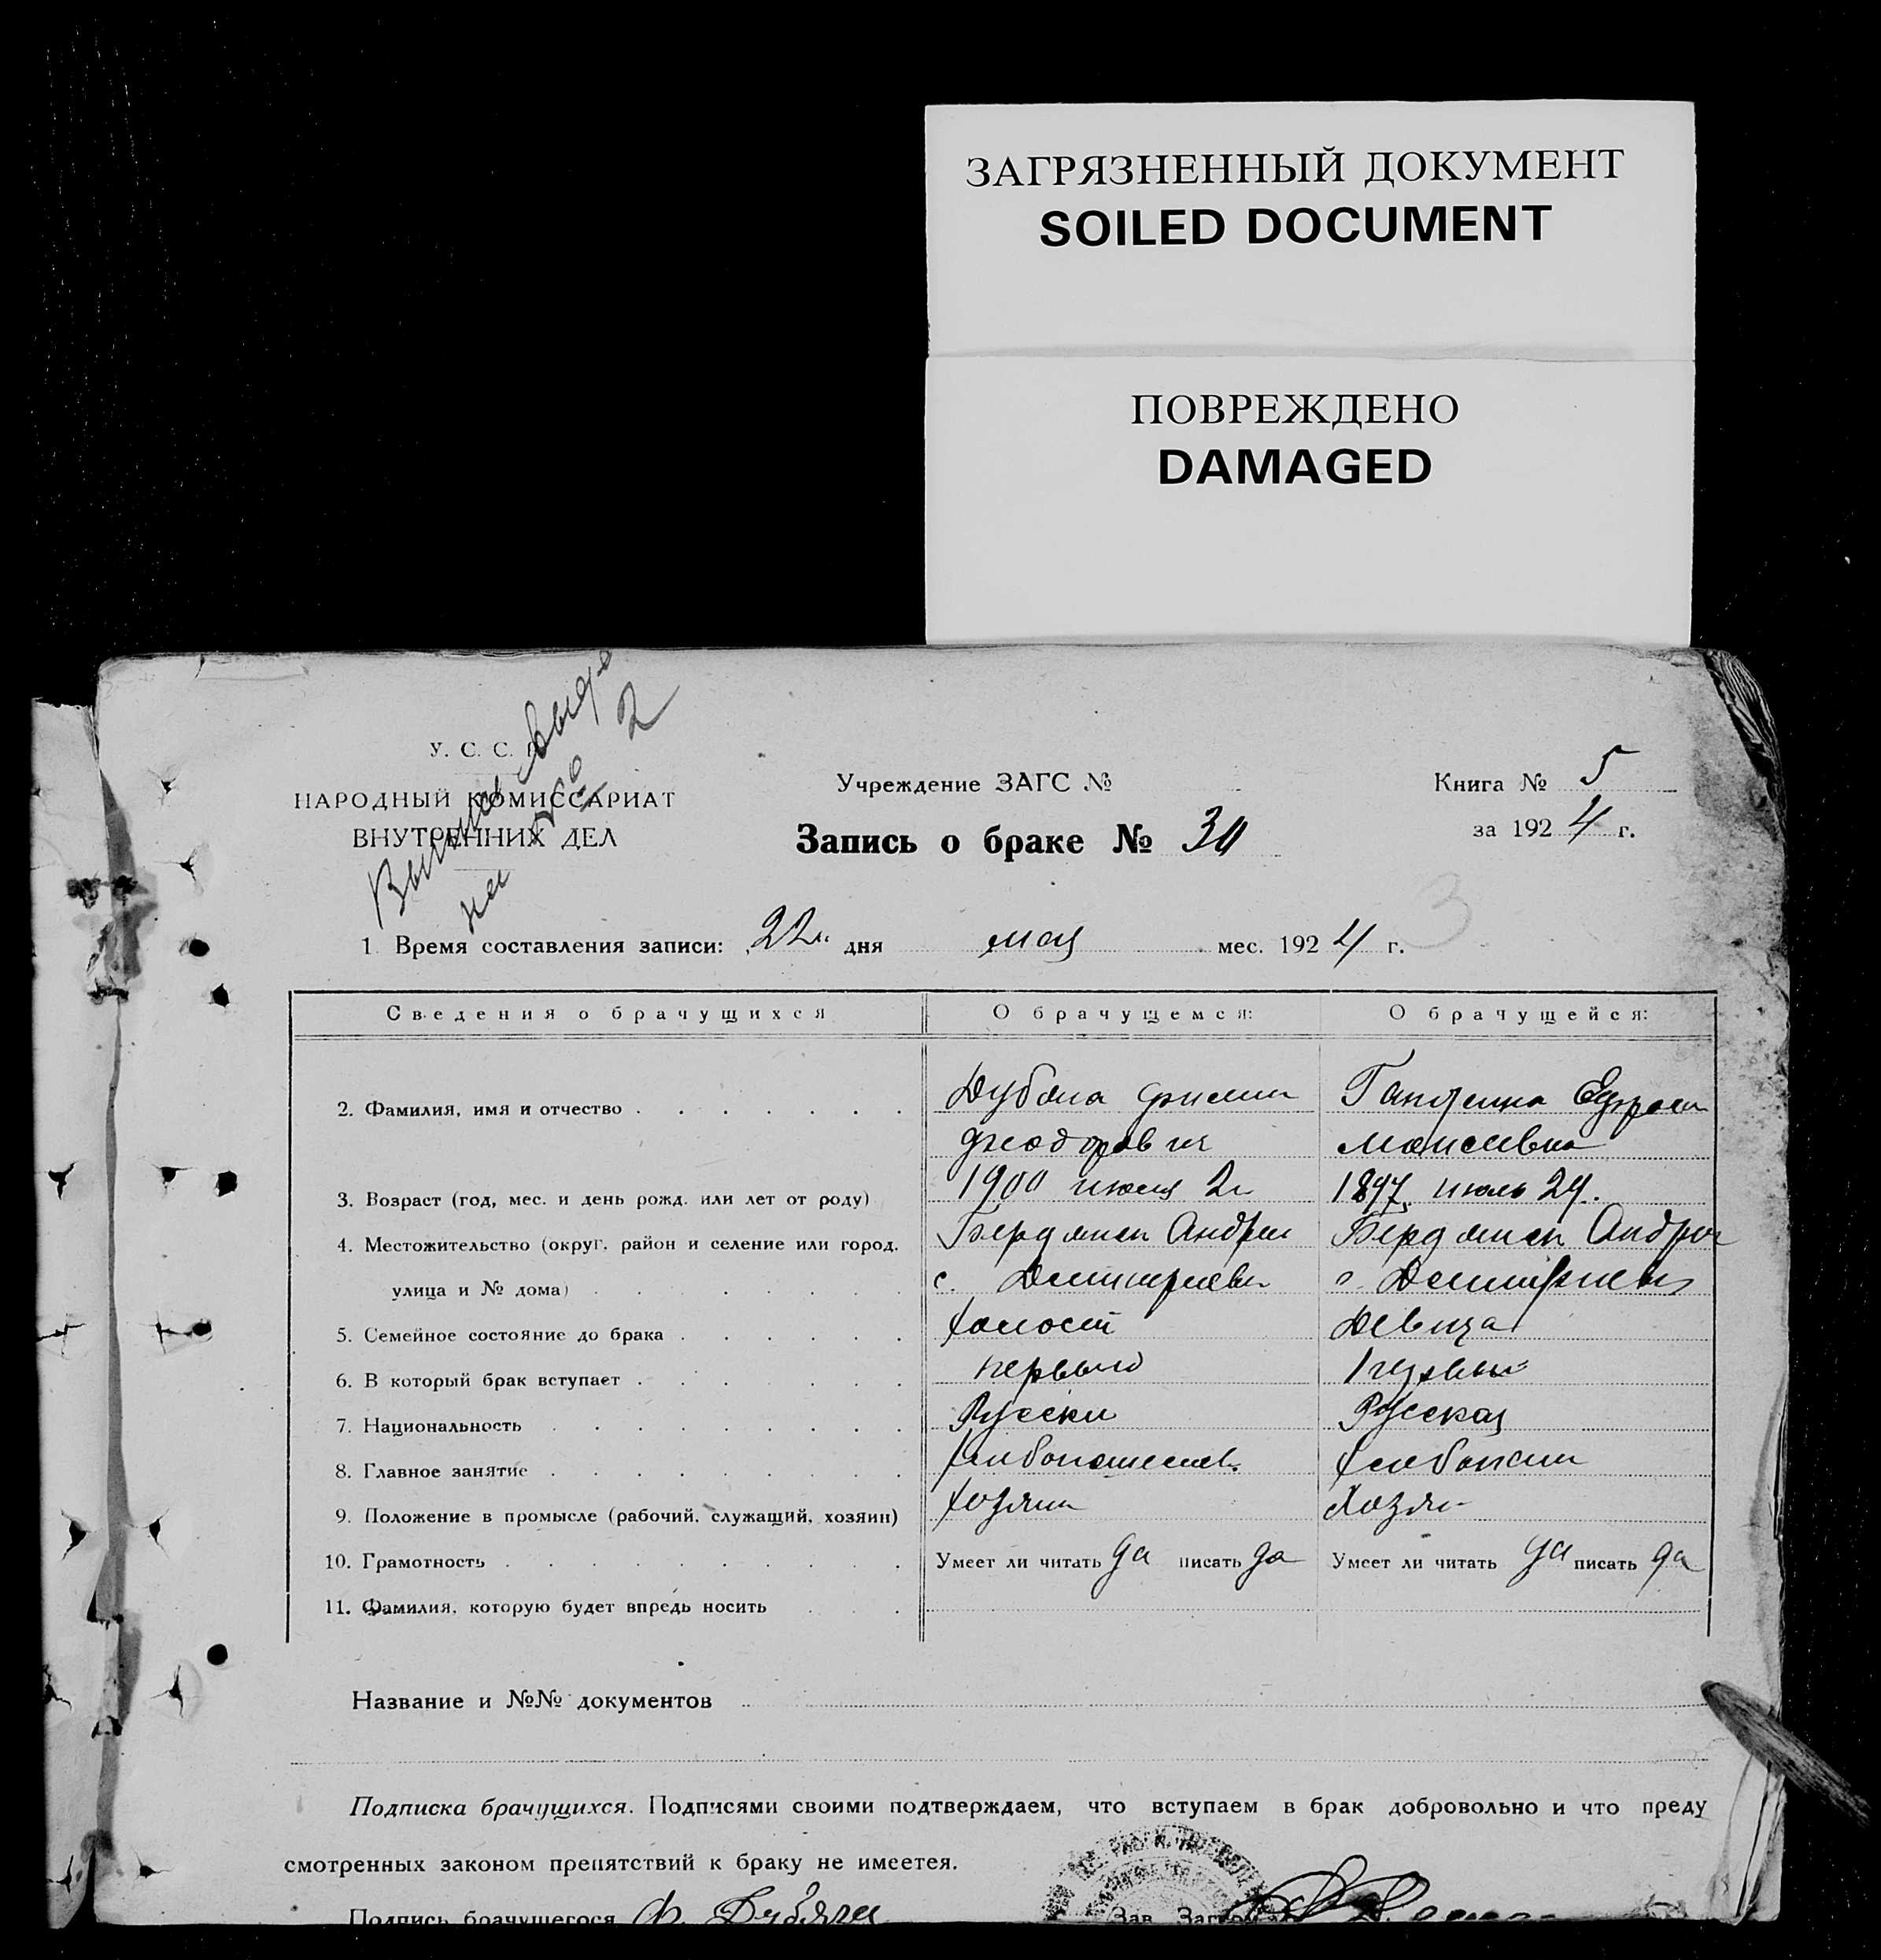 ЗАГРЯЗНЕННЫЙ ДОКУМЕНТ
SOILED DOCUMENT
ПОВРЕЖДЕНО
DAMAGED
2
У. С. С.
НАРОДНЫЙ КОМИССАРИАТ
ВНУТРЕННИХ ДЕЛ
Учреждение ЗАГС №
Запись о браке №
Книга № 5
за 1924 г.
3
1. Время составления записи: 22 дня мая мес. 1924 г.
Сведения о брачущихся О брачущемся: О брачущейся:
2. Фамилия, имя и отчество
Моисеевна
3. Возраст (год, мес. и день рожд. или лет от роду) 1900 июля 2 1897 июль 24.
4. Местожительство (округ, район и селение или город, Бердянск Андрее Бердянск Андрее
улица и № дома) с. Дмитриевк с. Дмитриевк
5. Семейное состояние до брака холост девица
6. В который брак вступает первый первый
7. Национальность Русски Русская
8. Главное занятие
9. Положение в промысле (рабочий, служащий, хозяин) хозяин Хозяи
10. Грамотность Умеет ли читать да писать да Умеет ли читать да писать да
11. Фамилия, которую будет впредь носить
Название и №№ документов
Подписка брачущихся. Подписями своими подтверждаем, что вступаем в брак добровольно и что преду
смотренных законом препятствий к браку не имеется.
Подпись брачущегося Ф. Дубяга Зав. Загсом